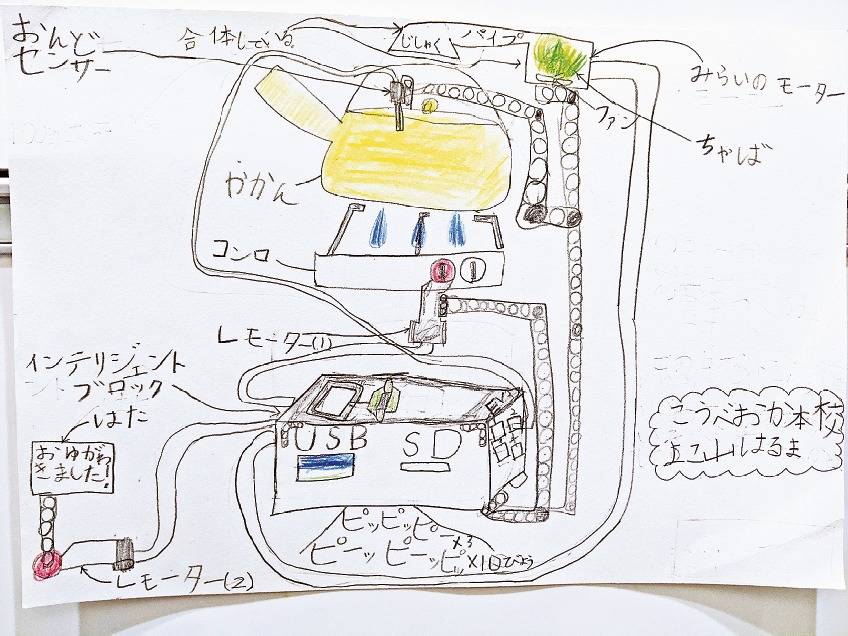 おんど
センサー
合体している
じしゃく
パイプ
みらいのモーター
ファン
ちゃば
やかん
コンロ
Lモーター(1)
インテリジェント
ブロック
はた
おゆがわ
きました!
USB
SD
EV
ピッピッピー×3
ピーッピーッピッ×10びょう
Lモーター(2)
こうべおか本校
はるま